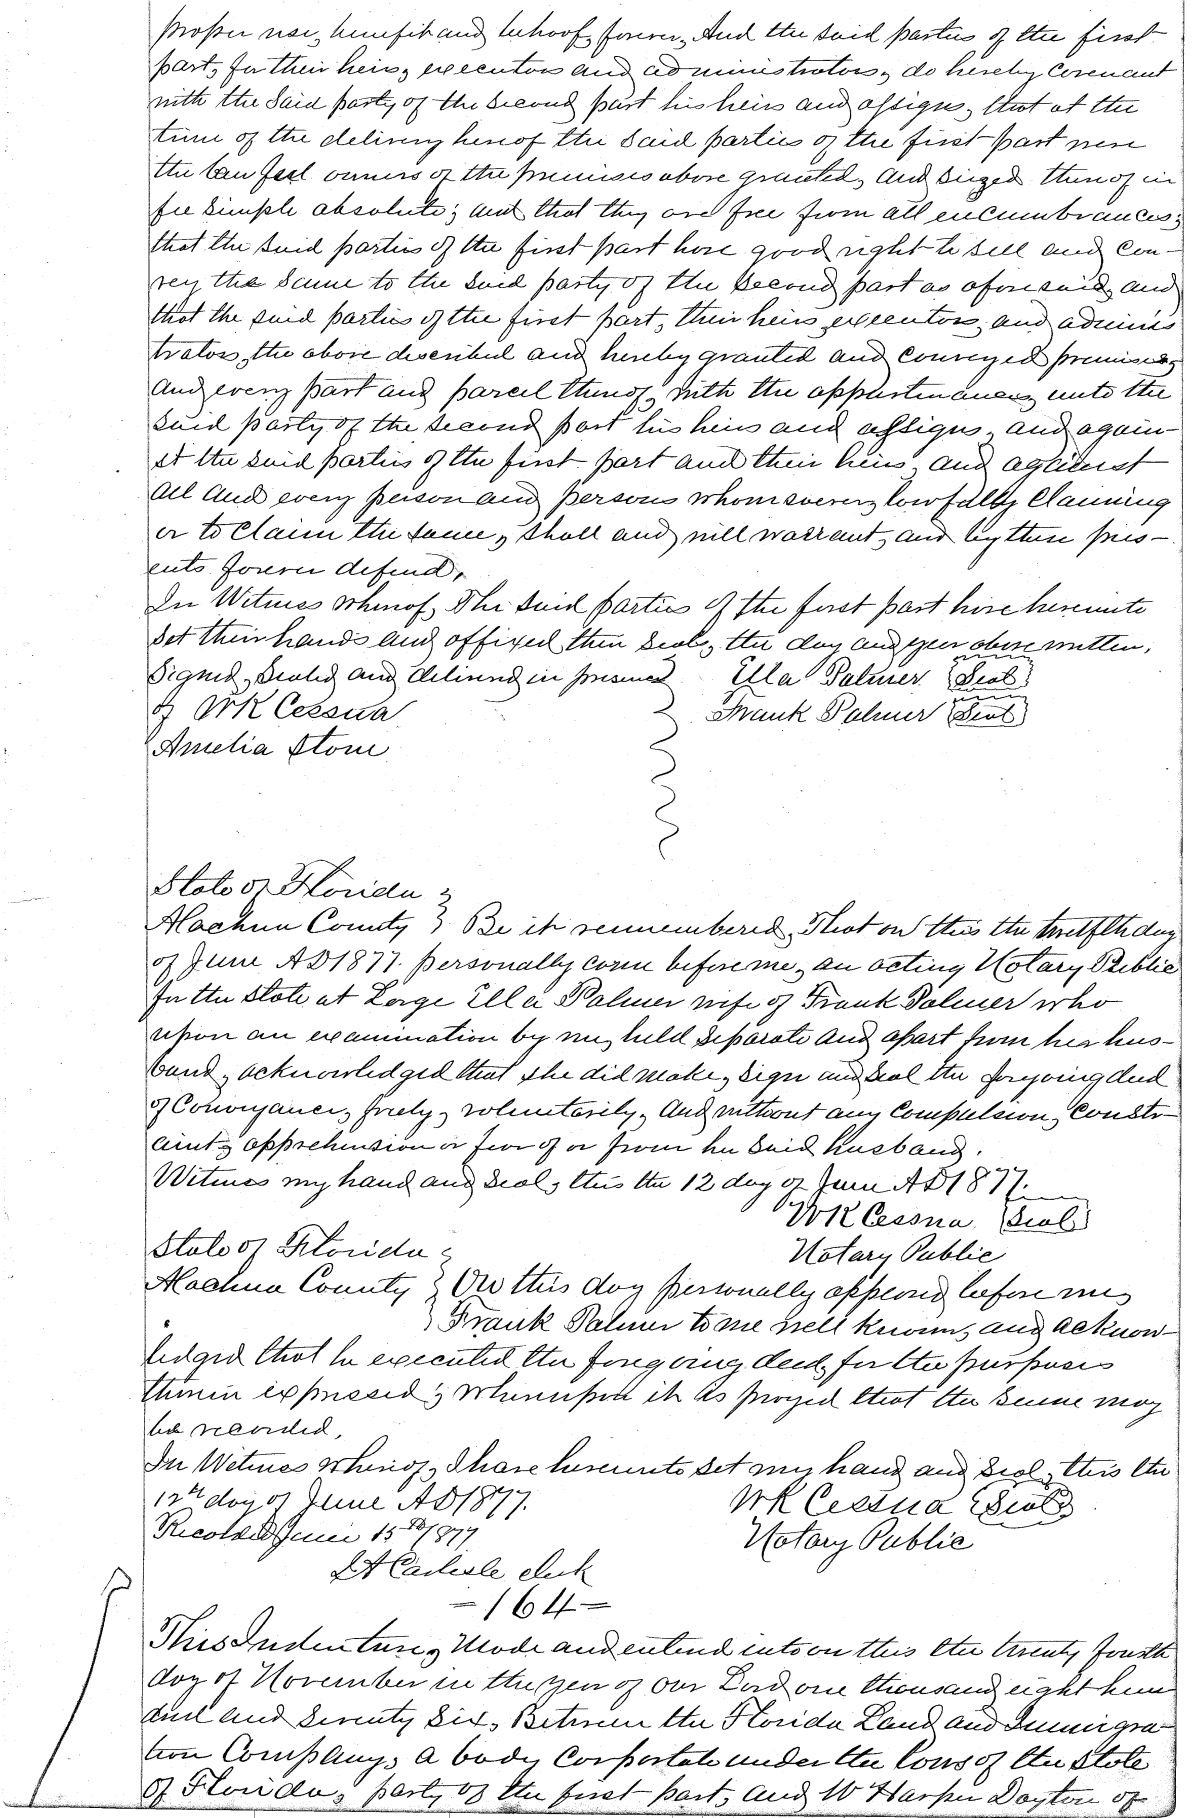 proper use, benefit and behoof forever, And the said parties of the first
part, for their heirs, executors and administrators, do hereby Covenant
with the Said party of the Second part his heirs and assigns, that at the
time of the delivery hereof the Said parties of the first part were
the lawful owners of the premises above granted, And Siezed thereof in
fee Simple absolute; and that they are free from all encumbrances;
that the Said parties of the first part have good right to Sell and Con-
vey the Same to the Said party of the Second part as aforesaid, and
that the said parties of the first part, their heirs executors, and adminis
trators, the above described and hereby granted and Conveyed premises,
And every part and parcel thereof, with the appurtenances, unto the
Said party of the Second part his heirs and assigns, and again-
st the Said parties of the first part and their heirs, and against
All And every person and persons whomsoever, lawfully Claiming
or to Claim the Same, Shall and will warrant, and by these pres-
ents forever defend,
In Witness Whereof, The Said parties of the first part have hereunto
Set their hands and affixed their Seals, the day and year above written,
Signed, Sealed and delivered in presence Ella Palmer (Seal)
of WK Cessna Frank Palmer (Seal)
Amelia Stone
State of Florida
Alachua County } Be it remembered, That on this the twelfth day
of June AD 1877. personally came before me, an acting Notary Public
for the State at Large Ella Palmer wife of Frank Palmer who
upon an examination by me, held Separate and apart from her hus-
band, acknowledged that She did make, Sign and Seal the foregoing deed
of Conveyance, freely, voluntarily, And without any Compulsion, Constr-
aint, apprehension or fear of or from her Said husband.
Witness my hand and Seal, this the 12 day of June AD 1877.
WK Cessna (Seal)
State of Florida Notary Public
Alachua County } On this day personally appeared before me,
Frank Palmer to me well known, and acknow-
ledged that he executed the foregoing deed, for the purposes
therein expressed; whereupon it is prayed that the Same may
be recorded,
In Witness Whereof, I have hereunto Set my hand and Seal, this the
12th day of June AD 1877. WK Cessna (Seal)
Recorded June 15th 1877 Notary Public
Carlisle clerk
-164-
This Indenture, Made and entered into on this the twenty fourth
day of November in the year of our Lord one thousand eight hun
dred and Seventy Six, Between the Florida Land and Immigra-
tion Company, a body Corporate under the laws of the State
of Florida, party of the first part, and W Harper Dayton of